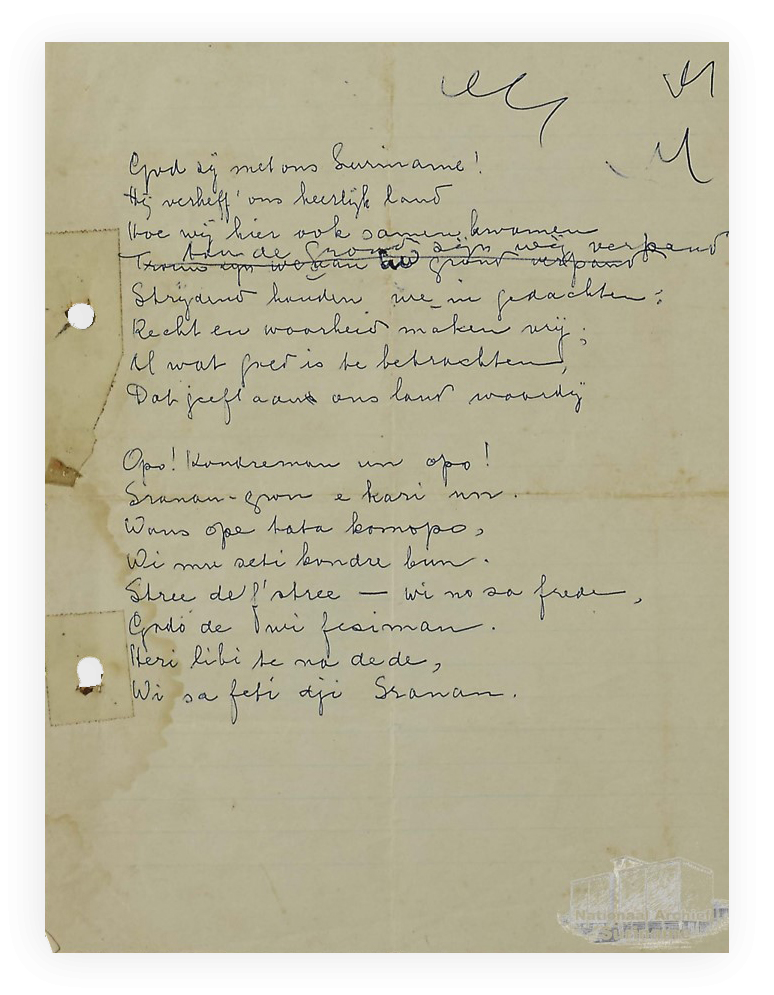 God zij met ons Suriname!
Hij verheff' ons heerlijk land
Hoe wij hier ook samen kwamen
Aan de grond zijn wij verpand
Trouw zijn we aan grond verpand
Strijdend houden we in gedachten;
Recht en waarheid maken vrij;
Al wat goed is te betrachten,
Dat geeft aan ons land waardij
Opo! Kondreman un opo!
Sranan-gron e kari un.
Wans ope tata komopo,
Wi mu seti kondre bun.
Stree de f'stree — wi no sa frede,
Gado de wi fesiman.
Heri libi te na dede,
Wi sa feti dji Sranan.
Nationaal Archief
Suriname